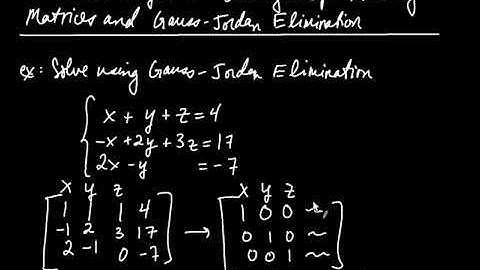 Matrices and Gauss-Jordan Elimination
ex: Solve using Gauss-Jordan Elimination
x + y + z = 4
-x + 2y + 3z = 17
2x - y = -7
x y z x y z
1 1 1 4 → 1 0 0 ~
-1 2 3 17 0 1 0 ~
2 -1 0 -7 0 0 1 ~